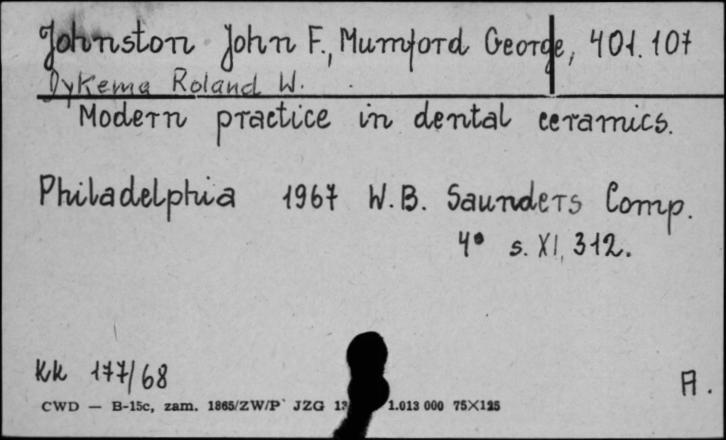 Johnston John F., Mumford George, 401.107
Dykema Roland W.
Modern practice in dental ceramics.
Philadelphia 1967 W.B. Saunders Comp.
4° s. XI, 312.
Kk 177/68
A.
CWD — B-15c, zam. 1865/ZW/P JZG 1.013 000 75×125